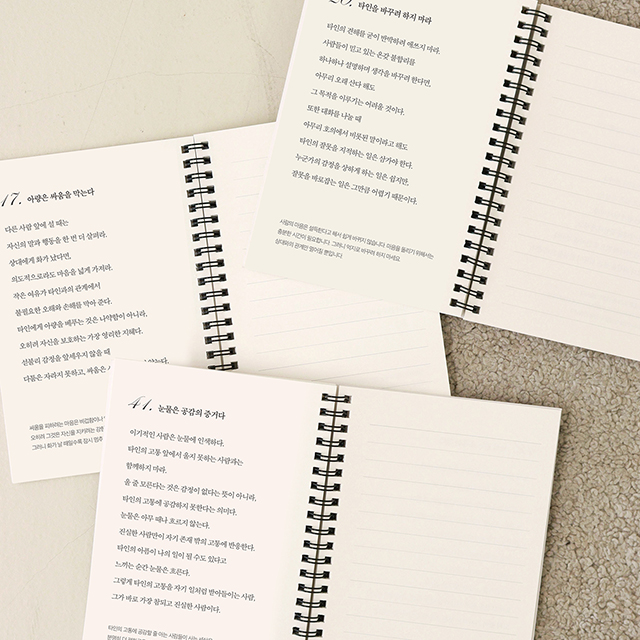 타인을 바꾸려 하지 마라
타인의 견해를 굳이 반박하려 애쓰지 마라.
사람들이 믿고 있는 온갖 불합리를
하나하나 설명하며 생각을 바꾸려 한다면,
아무리 오래 산다 해도
그 목적을 이루기는 어려울 것이다.
또한 대화를 나눌 때
아무리 호의에서 비롯된 말이라고 해도
타인의 잘못을 지적하는 일은 삼가야 한다.
누군가의 감정을 상하게 하는 일은 쉽지만,
잘못을 바로잡는 일은 그만큼 어렵기 때문이다.
사람의 마음은 설득한다고 해서 쉽게 바뀌지 않습니다. 마음을 돌리기 위해서는
충분한 시간이 필요합니다. 그러니 억지로 바꾸려 하지 마세요.
상대와의 관계만 멀어질 뿐입니다.
17. 아량은 싸움을 막는다
다른 사람 앞에 설 때는
자신의 말과 행동을 한 번 더 살펴라.
상대에게 화가 났다면,
의도적으로라도 마음을 넓게 가져라.
작은 여유가 타인과의 관계에서
불필요한 오해와 손해를 막아 준다.
타인에게 아량을 베푸는 것은 나약함이 아니라,
오히려 자신을 보호하는 가장 영리한 지혜다.
섣불리 감정을 앞세우지 않을 때
다툼은 자라지 못하고, 싸움은
싸움을 피하려는 마음은 비겁함이나
오히려 그것은 자신을 지키려는
그러니 화가 날 때일수록 잠시 멈추
41. 눈물은 공감의 증거다
이기적인 사람은 눈물에 인색하다.
타인의 고통 앞에서 울지 못하는 사람과는
함께하지 마라.
울 줄 모른다는 것은 감정이 없다는 뜻이 아니라,
타인의 고통에 공감하지 못한다는 의미다.
눈물은 아무 때나 흐르지 않는다.
진실한 사람만이 자기 존재 밖의 고통에 반응한다.
타인의 아픔이 나의 일이 될 수도 있다고
느끼는 순간 눈물은 흐른다.
그렇게 타인의 고통을 자기 일처럼 받아들이는 사람,
그가 바로 가장 참되고 진실한 사람이다.
타인의 고통에 공감할 줄 아는 사람들이